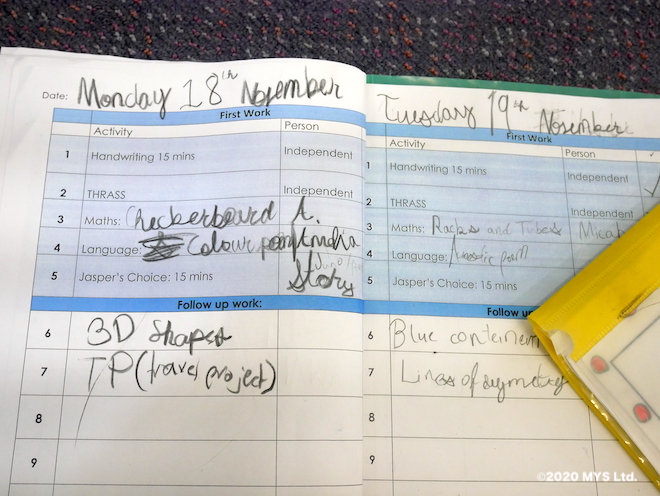 Date: Monday 18th November
First Work
Activity Person
1 Handwriting 15 mins Independent
2 THRASS Independent
3 Maths: Checkerboard A.
4 Language: Colour poem
5 Jasper's Choice: 15 mins Story
Follow up work:
6 3D shapes
7 TP (travel project)
8
9
Tuesday 19th November
First Work
Activity Person
1 Handwriting 15 mins Independent
2 THRASS Independent
3 Maths: Racks and Tubes
4 Language:
5 Jasper's Choice: 15 mins
Follow up
6 Blue
7 Lines of symmetry
8
9
©2020 MYS Ltd.